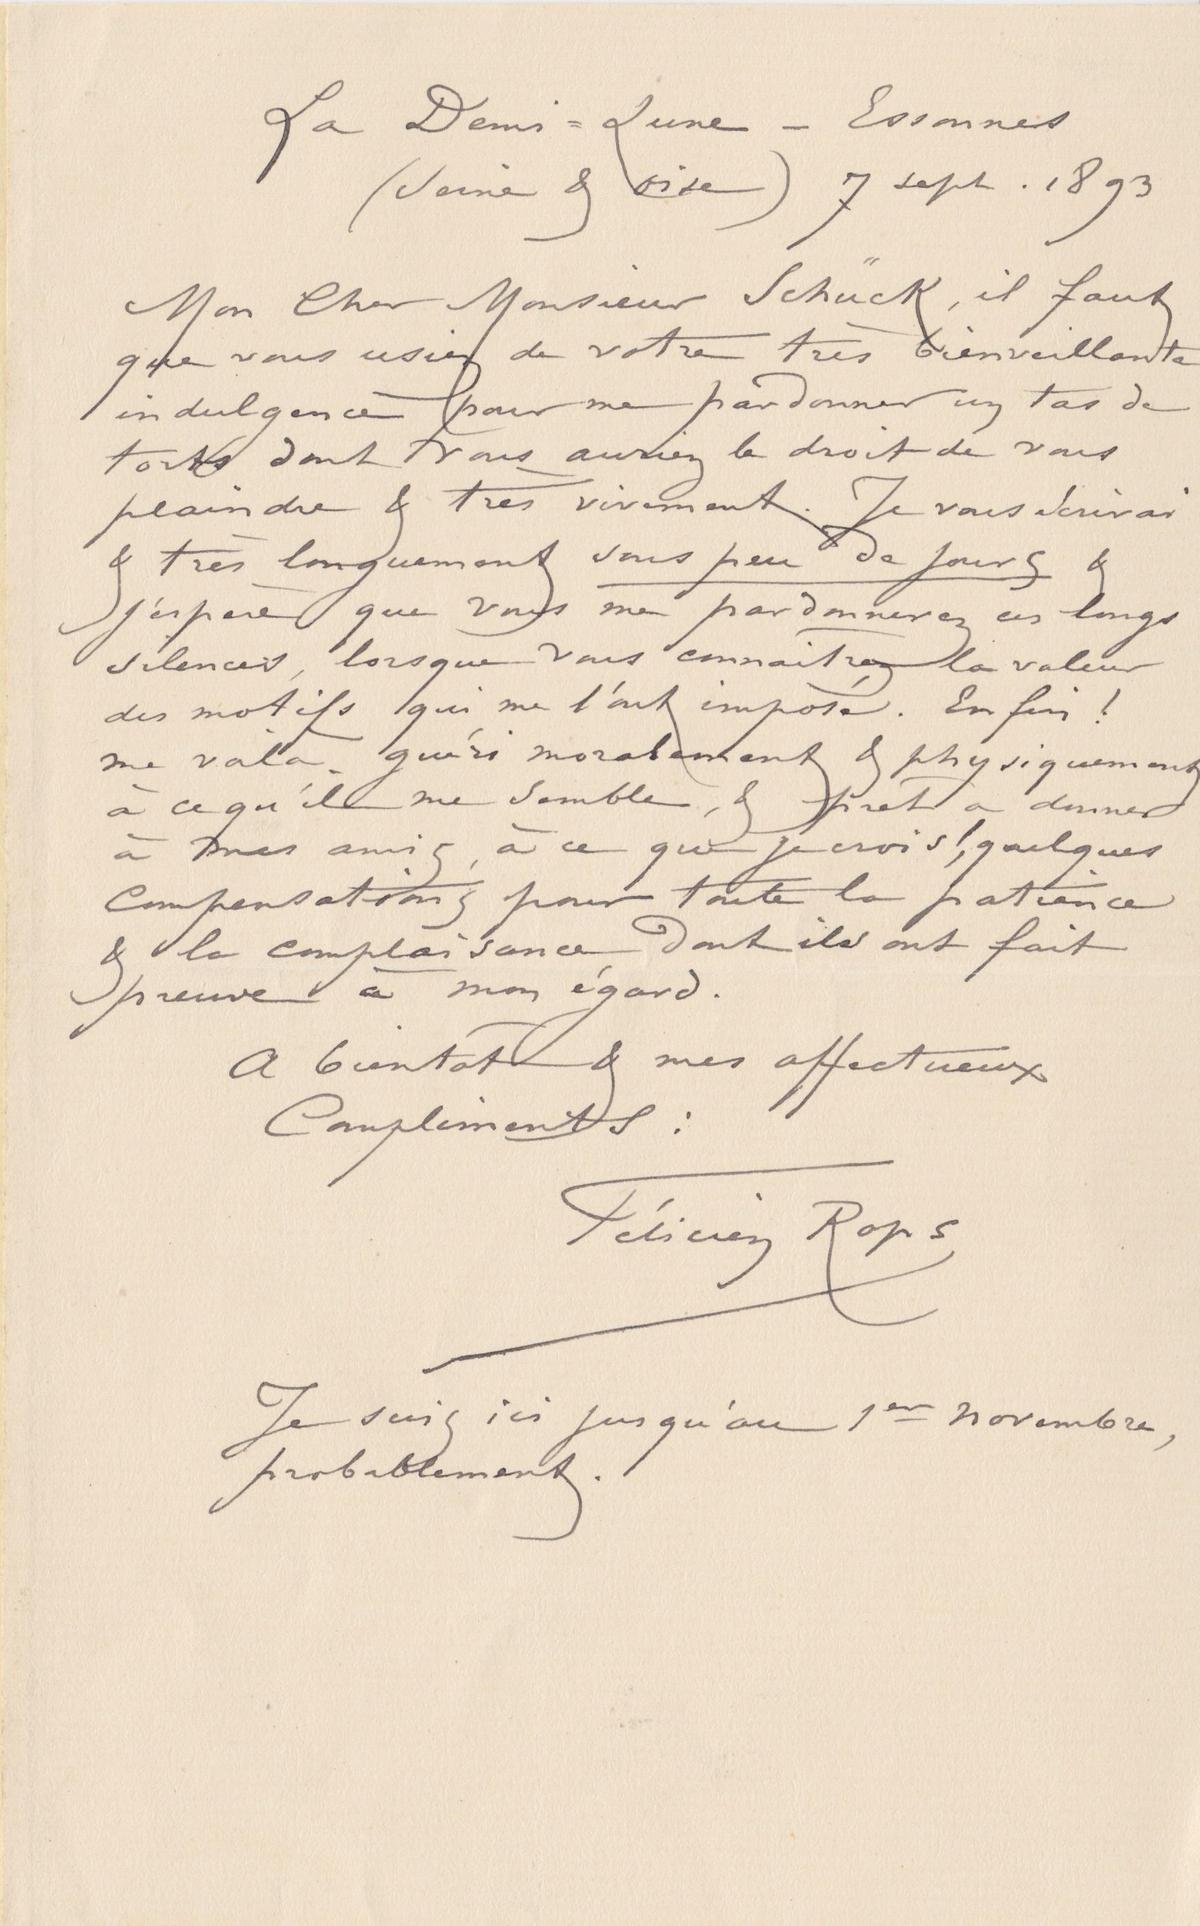 La Demi=Lune – Essonnes
(Seine & Oise) 7 sept. 1893
Mon Cher Monsieur Schück, il faut
que vous usiez de votre très bienveillante
indulgence pour me pardonner un tas de
torts dont vous auriez le droit de vous
plaindre & très vivement. Je vous écrirai
& très longuement sous peu de jours &
j'espère que vous me pardonnerez ces longs
silences, lorsque vous connaitrez la valeur
des motifs qui me l'ont imposé. Enfin !
me voila guéri moralement & physiquement
à ce qu'il me semble, & prêt a donner
à mes amis, à ce que je crois !, quelques
compensations pour toute la patience
& la complaisance dont ils ont fait
preuve à mon égard.
A bientot & mes affectueux
Compliments :
Félicien Rops
Je suis ici jusqu'au 1er novembre,
probablement.